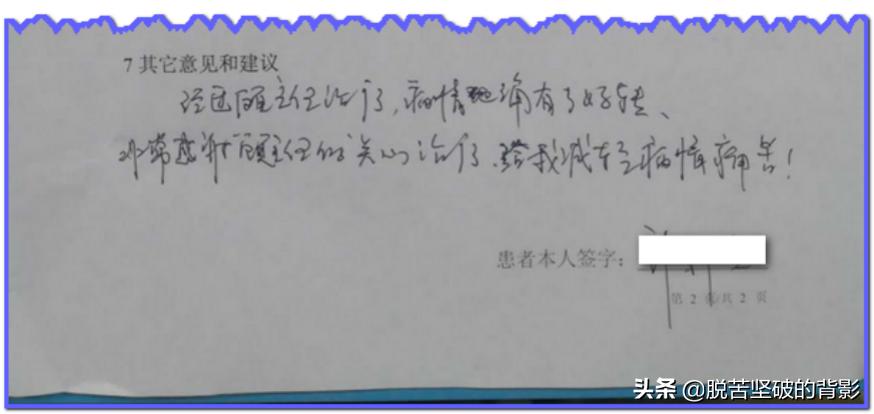 7 其它意见和建议
经过顾主任治疗，病情的确有了好转、
非常感谢顾主任的关心治疗，给我减轻病情痛苦！
患者本人签字：
第 2 页/共 2 页
头条 @脱苦坚破的背影